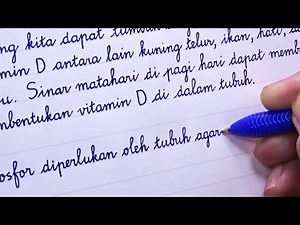 ng kita dapat tumbuh
min D antara lain kuning telur, ikan, hati,
u. Sinar matahari di pagi hari dapat memb
mbentukan vitamin D di dalam tubuh.
osfor diperlukan oleh tubuh agar